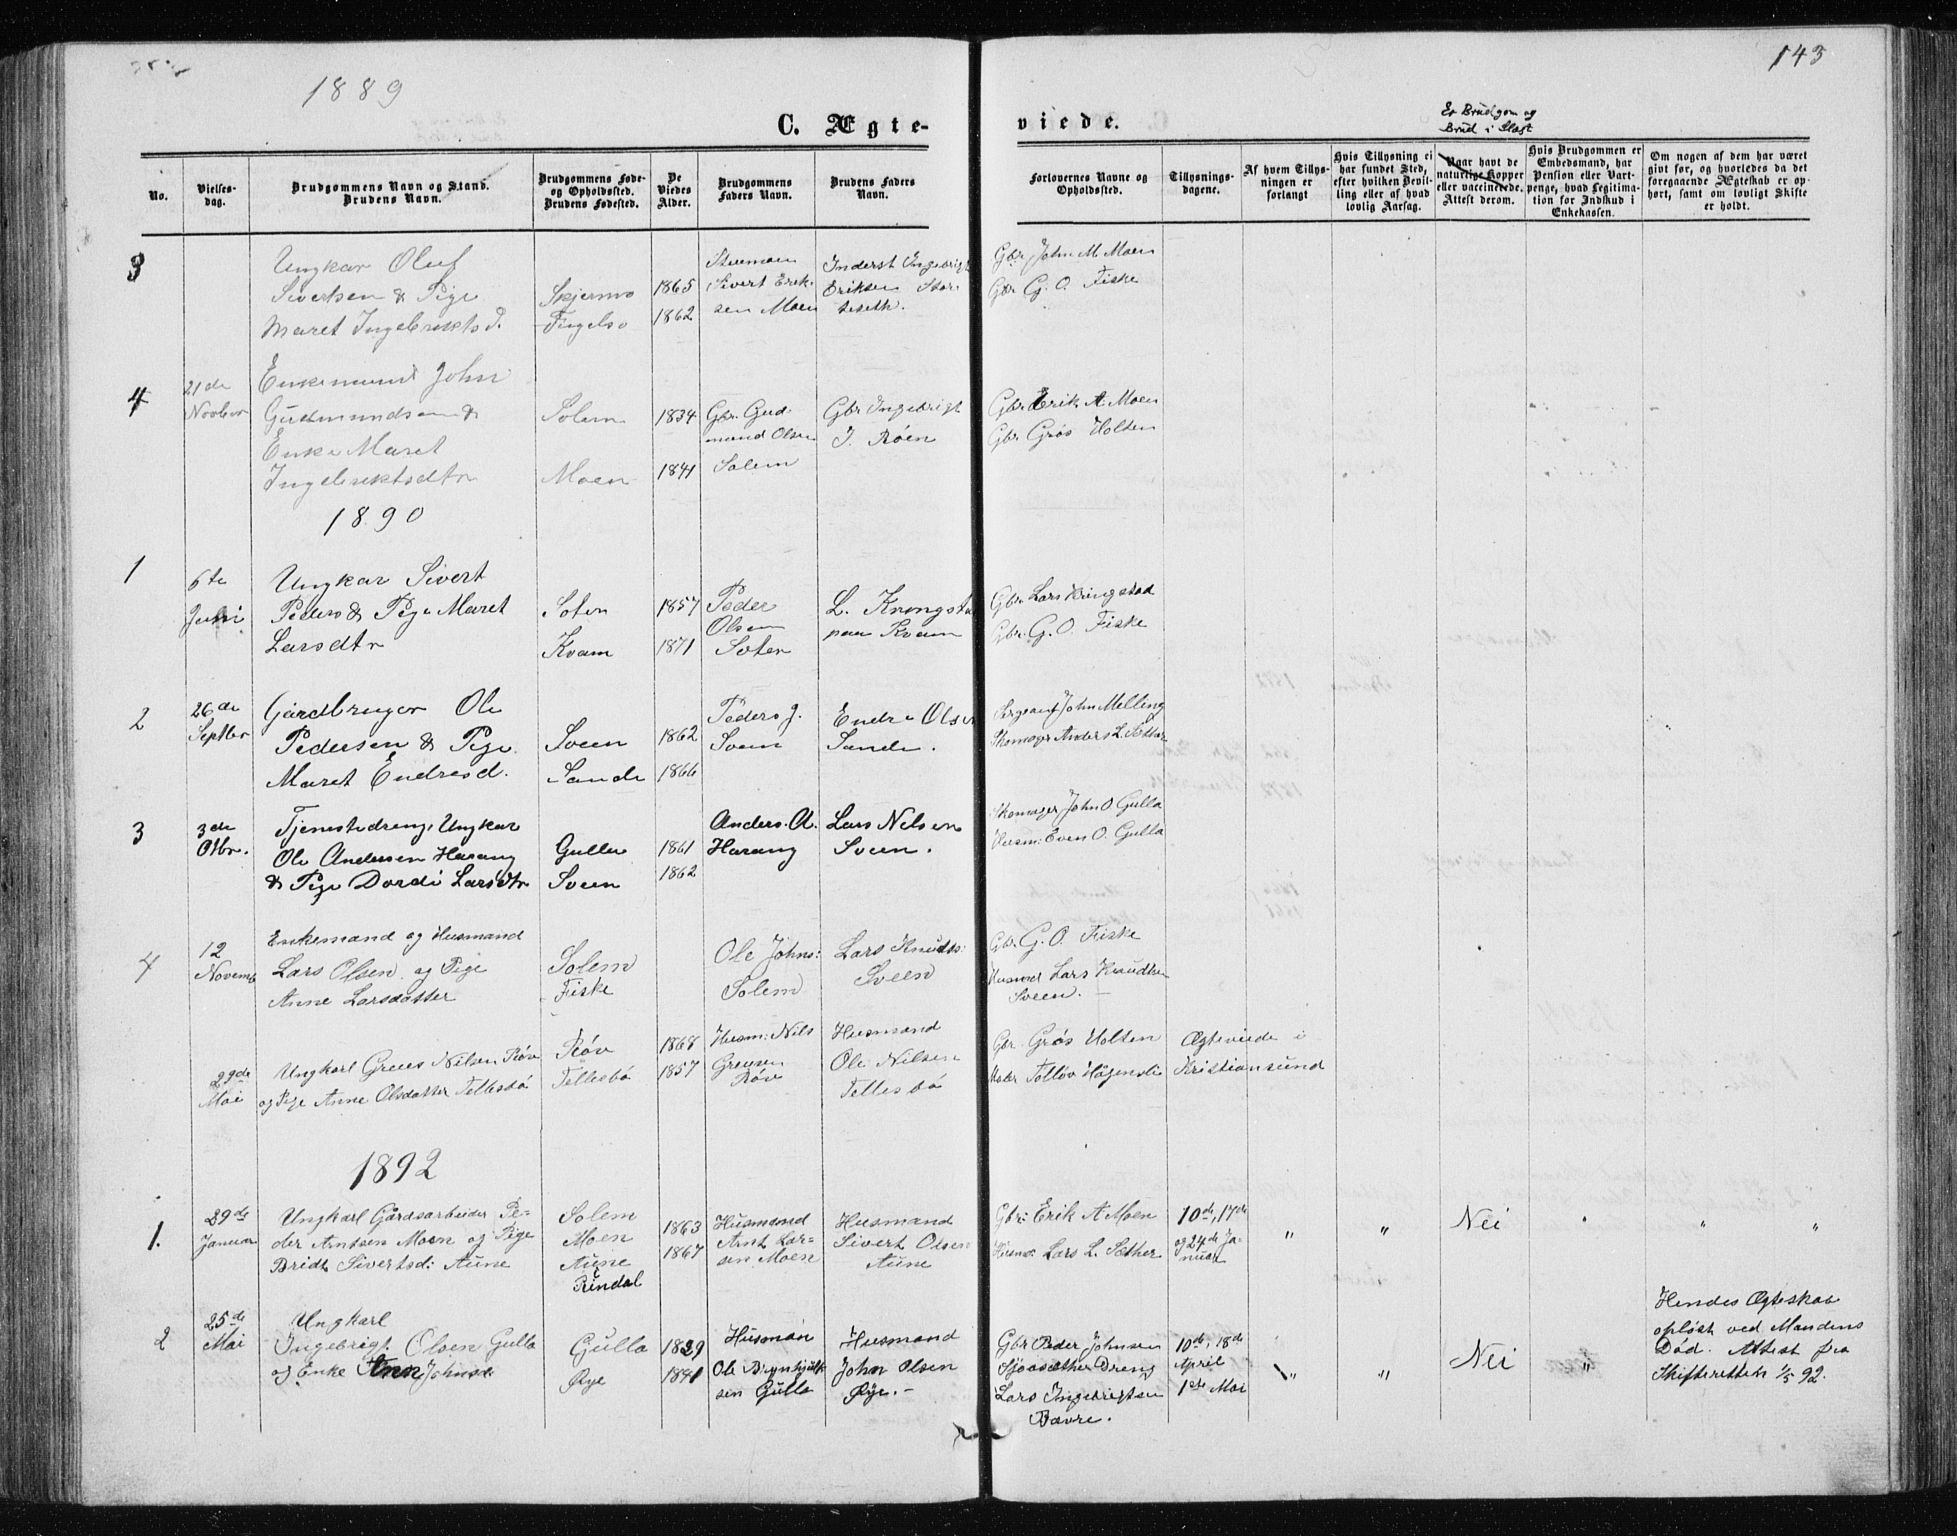 143
1889
C. Ægteviede.
Er Brudgom og
Brud i Slægt
No.
Vielses-
dag.
Brudgommens Navn og Stand.
Brudens Navn.
Brudgommens Føde-
og Opholdssted.
Brudens Fødested.
De
Viedes
Alder.
Brudgommens
Faders Navn.
Brudens Faders
Navn.
Forlovernes Navne og
Opholdssted.
Tillysnings-
dagene.
Af hvem Tillys-
ningen er
forlangt
Hvis Tillysning ei
har fundet Sted,
efter hvilken Bevil-
ling eller af hvad
lovlig Aarsag.
Naar havt de
naturlige Kopper
eller vaccinerede.
Attest derom.
Hvis Brudgommen er
Embedsmand, har
Pension eller Vart-
penge, hvad Legitima-
tion for Indskud i
Enkekassen.
Om nogen af dem har været
gift før, og hvorledes da det
foregaaende Ægteskab er op-
hørt, samt om lovligt Skifte
er holdt.
3
Ungkar Oluf
Sivertsen & Pige
Maret Ingebriktsd.
Skjermo
Fugelso
1865
1862
Sivert Erik-
sen Moen
Inderst Ingebrigt
Eriksen Stor-
teseth.
Gbr John M Moen
Gbr G. O. Fiske
4
21de
Novbr
Enkemand John
Gudmundsen &
Enke Maret
Ingebriktsdtr
Solem
Moen
1834
1841
Gbr. Gud-
mund Olsen
Solem
Gbr Ingebrigt
J. Røen
Gbr Erik A Moen
Gbr Grøs Holten
1890
1
6te
Juni
Ungkar Sivert
Peders & Pige Maret
Larsdtr
Soter
Kvam
1857
1871
Peder
Olsen
Soter
L. Kringsta
paa Kvam
Gbr Lars Kringstad
Gbr. G. O. Fiske
2
26de
Septbr
Gårdbruger Ole
Pedersen & Pige
Maret Endresd.
Sveen
Sande
1862
1866
Peders J.
Sveen
Endre Olsen
Sande.
Sergeant John Melling
Skomager Anders L. Sæther
3
3de
Otbr.
Tjenestedreng, Ungkar
Ole Andersen Harang
& Pige Dordi Larsdtr
Gulla
Sveen
1861
1862
Anders. A.
Harang
Lars Nilsen
Sveen.
Skomager John O. Gulla
Husm: Even O. Gulla
4
12
Novemb
Enkemand og Husmand
Lars Olsen og Pige
Anne Larsdatter
Solem
Fiske
Ole Johns:
Solem
Lars Knudts:
Sveen
Gbr. G. O. Fiske
Lars Knudtsen
Sveen.
29de
Mai
Ungkarl Greus Nilsen Røv
og Pige Anne Olsdatter Tellesbø
Røv
Tellesbø
1868
1857
Husm: Nils
Greusen
Røv
Husmand
Ole Nilsen
Tellesbø
Gbr. Grøs Holten
Maler Tolløv Høgensli
Ægteviede i
Kristiansund
1892
1.
29de
Januar
Ungkarl Gårdsarbeider Pe-
der Arntsen Moen og Pige
Bridt Sivertsd: Aune
Solem
Moen
Aune
Rindal
1863
1867
Husmand
Arnt Lar-
sen Moen
Husmand
Sivert Olsen
Aune
Gbr: Erik A Moen
Husm: Lars L. Sæther
10de, 17de
og 24de Ja-
nuar
"
"
Nei
"
"
"
2
25de
Mai
Ungkarl
Ingebrigt Olsen Gulla
og Enke Ane Johnsd:
Gulla
Øye
1829
1841
Husman
Ole Brynhjulf-
sen Gulla
Husmand
John Olsen
Øye. -
Gbr Peder Johnsen
Sjøasæther Dreng
Lars Ingebrigtsen
Bævre.
10de, 18de
April
1ste Mai
"
"
Nei
"
Hendes Ægteskab
opløst ved Mandens
Død. Attest fra
Skifteretten 1/5 92.